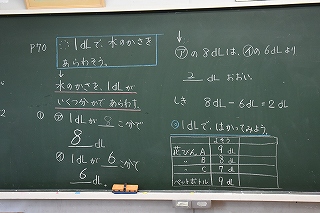 P70
1dLで、水のかさを
あらわそう。
↓
水のかさを、1dLが
いくつかで あらわす。
㋐ 1dLが 8 こかで
8 dL
㋑ 1dLが 6 こかで
6 dL
↓
㋐の8dLは、㋑の6dLより
2 dL おおい
しき 8dL−6dL=2dL
1dLで、はかってみよう。
よそう
花びんA 9dL
〃 B 8dL
〃 C 7dL
ペットボトル 9dL